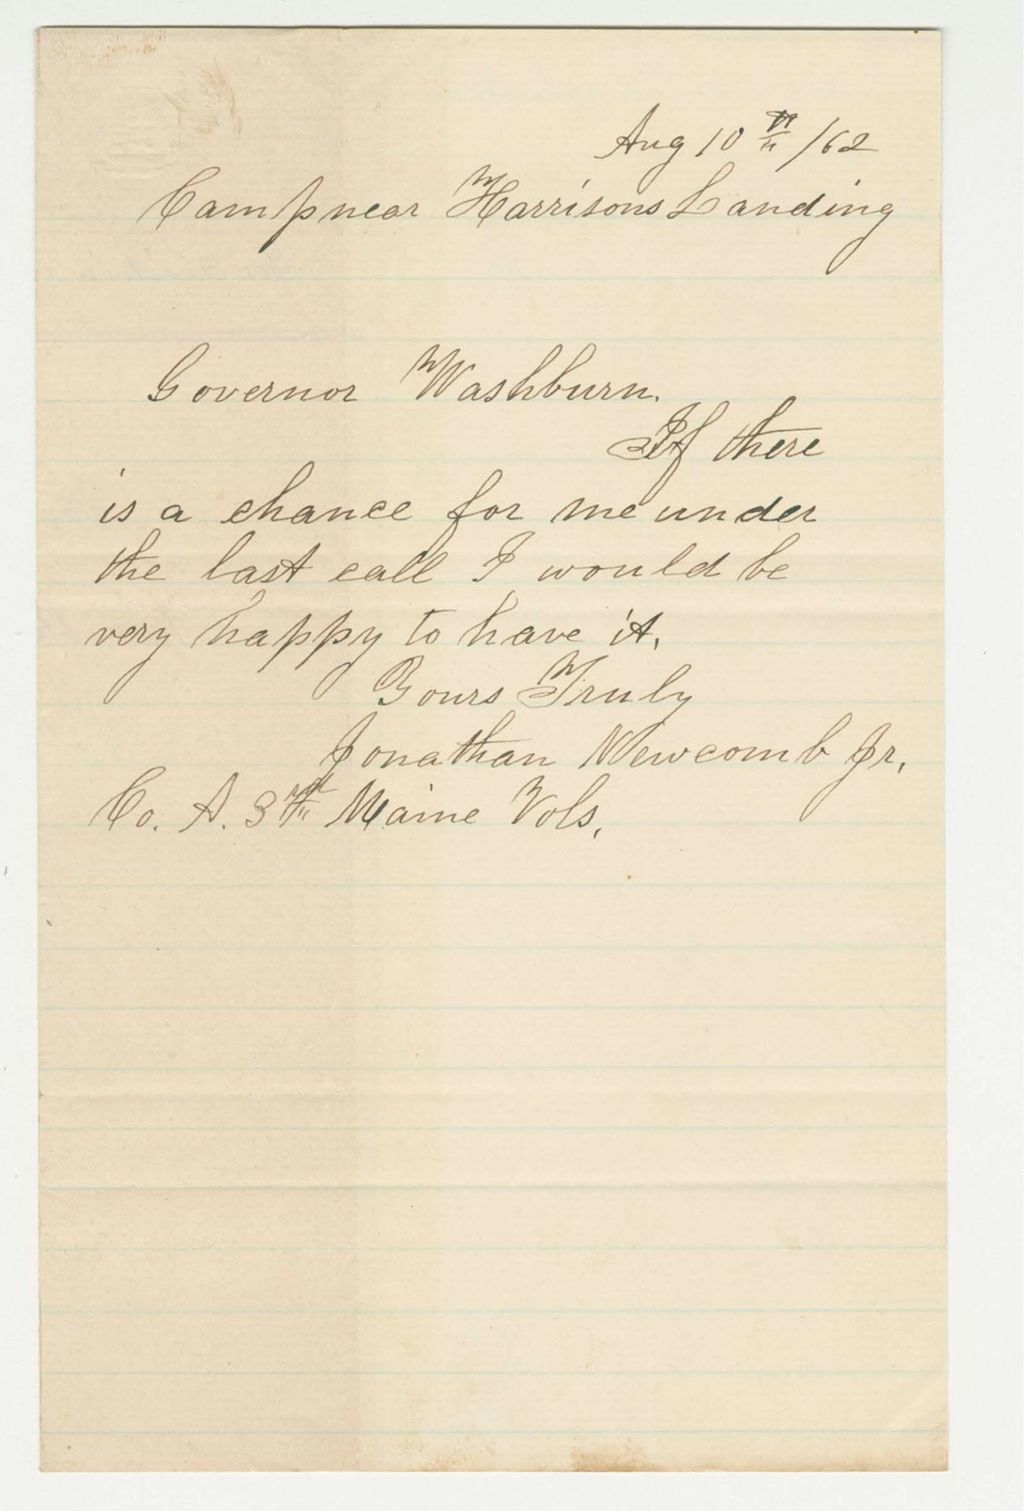 Aug 10th /62
Camp near Harrisons Landing
Governor Washburn.
If there
is a chance for me under
the last call I would be
very happy to have it.
Yours Truly
Jonathan Newcomb Jr.
Co. A. 3rd Maine Vols.